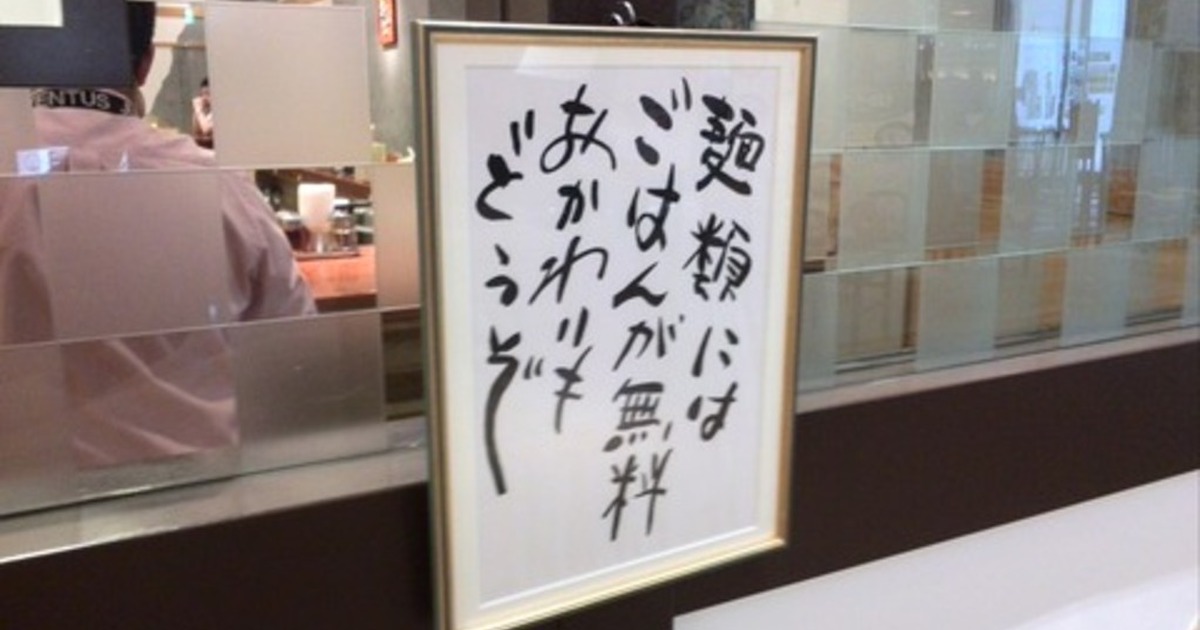 麺類には
ごはんが無料
おかわりも
どうぞ
ENTUS